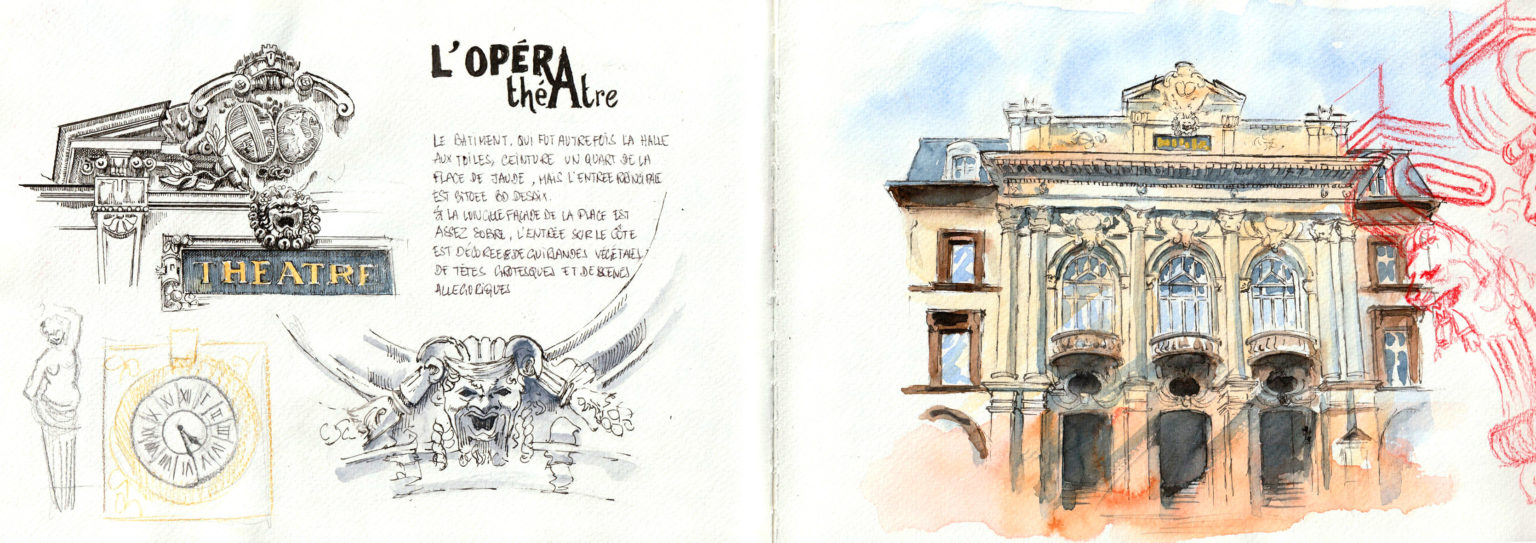 L'OPÉRA
théAtre
LE BATIMENT, QUI FUT AUTREFOIS LA HALLE
AUX TOILES, CEINTURE UN QUART DE LA
PLACE DE JAUDE, MAIS L'ENTREE PRINCIPALE
EST SITUEE BD DESAIX.
SI LA LONGUE FAÇADE DE LA PLACE EST
ASSEZ SOBRE, L'ENTRÉE SUR LE CÔTE
EST DÉCOREE DE GUIRLANDES VÉGÉTALES
DE TÊTES GROTESQUES ET DE SCENES
ALLEGORIQUES
THEATRE